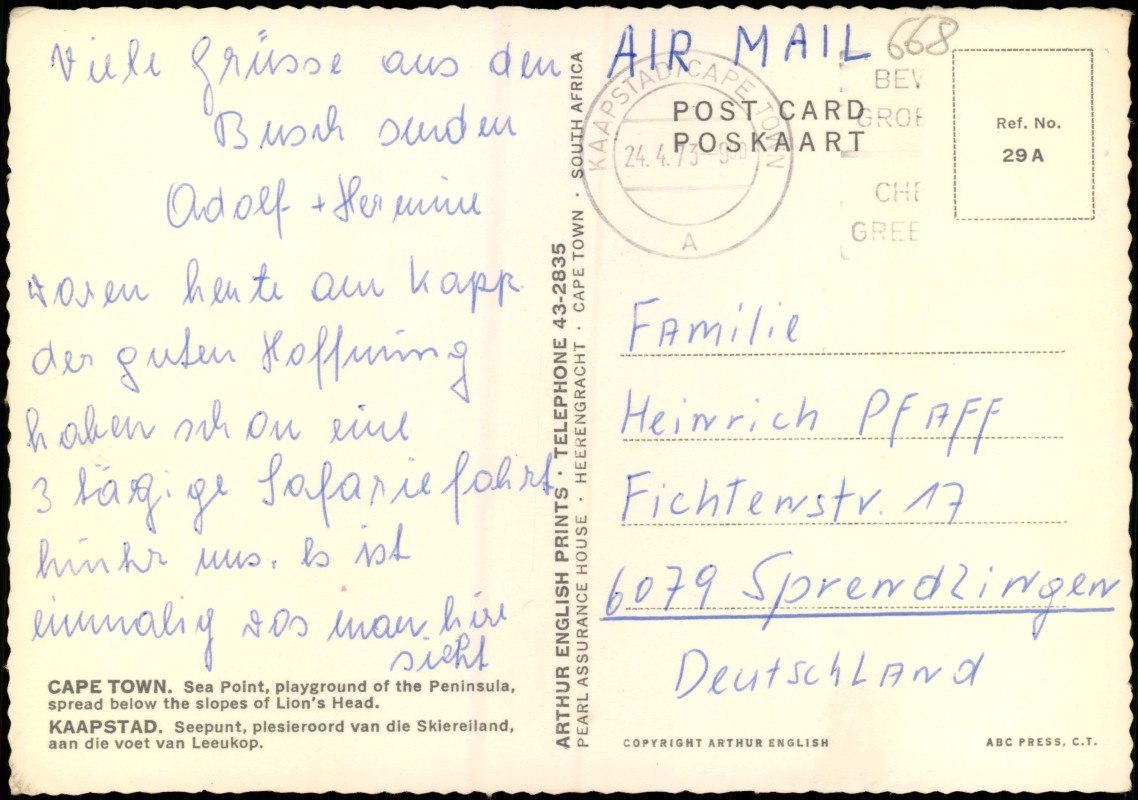 Viele Grüsse aus den
Busch senden
Adolf + Hermine
waren heute am Kapp
der guten Hoffnung
haben schon eine
3 tägige Safariefahrt
hinter uns. Es ist
einmalig was man hier
sieht
CAPE TOWN. Sea Point, playground of the Peninsula,
spread below the slopes of Lion's Head.
KAAPSTAD. Seepunt, plesieroord van die Skiereiland,
aan die voet van Leeukop.
ARTHUR ENGLISH PRINTS · TELEPHONE 43-2835
PEARL ASSURANCE HOUSE · HEERENGRACHT · CAPE TOWN · SOUTH AFRICA
AIR MAIL
668
POST CARD
POSKAART
KAAPSTAD/CAPE TOWN
24.4.73
A
BEW
GROE
CHE
GREE
Ref. No.
29A
Familie
Heinrich PFAFF
Fichtenstr. 17
6079 Sprendlingen
Deutschland
COPYRIGHT ARTHUR ENGLISH
ABC PRESS, C.T.